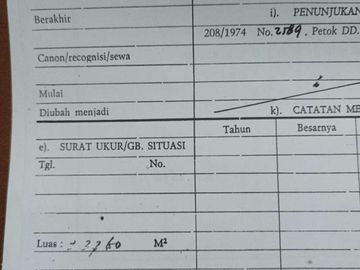 Berakhir
i). PENUNJUKAN
208/1974 No. 2589, Petok DD.
Canon/recognisi/sewa
Mulai
Diubah menjadi
k). CATATAN ME
Tahun Besarnya
e). SURAT UKUR/GB. SITUASI
Tgl. No.
Luas : M²